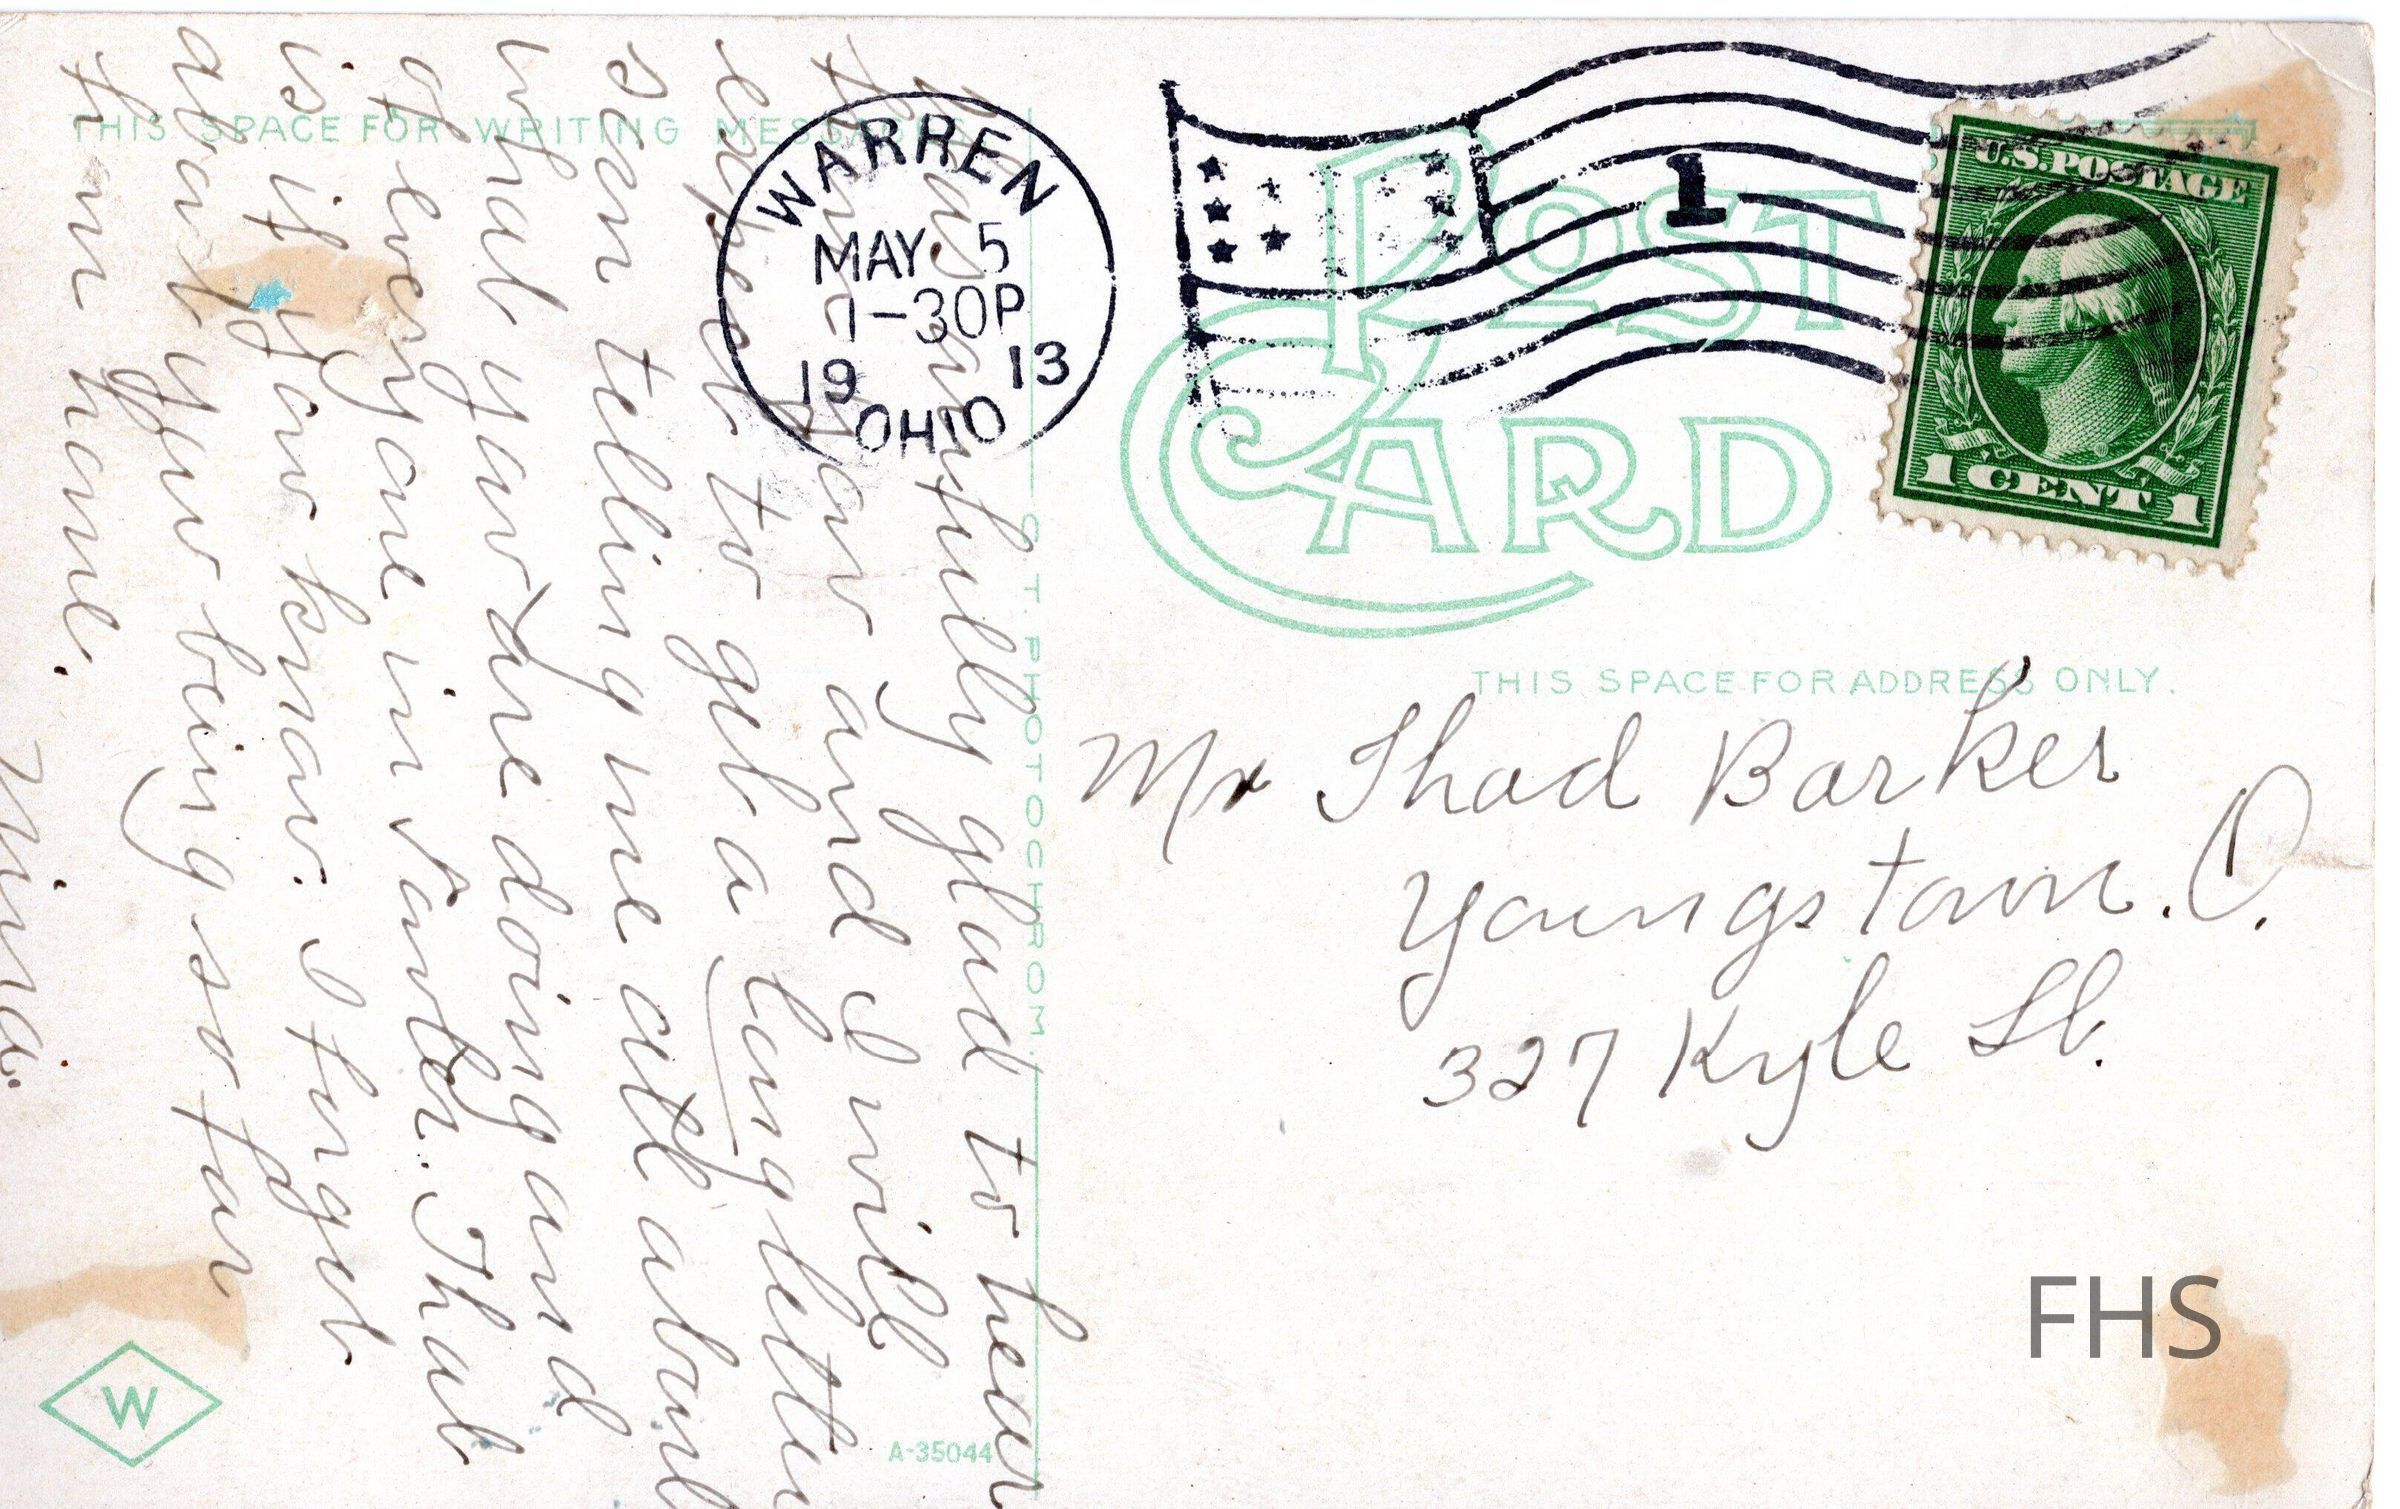 THIS SPACE FOR WRITING MESSAGES
POST
CARD
WARREN
MAY 5
1-30P
19 13
OHIO
1
U.S. POSTAGE
1 CENT 1
C.T. PHOTOCHROM
THIS SPACE FOR ADDRESS ONLY.
Mr Thad Barker
Youngstown. O.
327 Kyle St.
Was awfully glad to hear
from you and I will
expect to get a long letter
soon telling me all about
what you are doing and
of everyone in That
is if you know. I forget
about you being so far
from home.
Mina.
W
A-35044
FHS